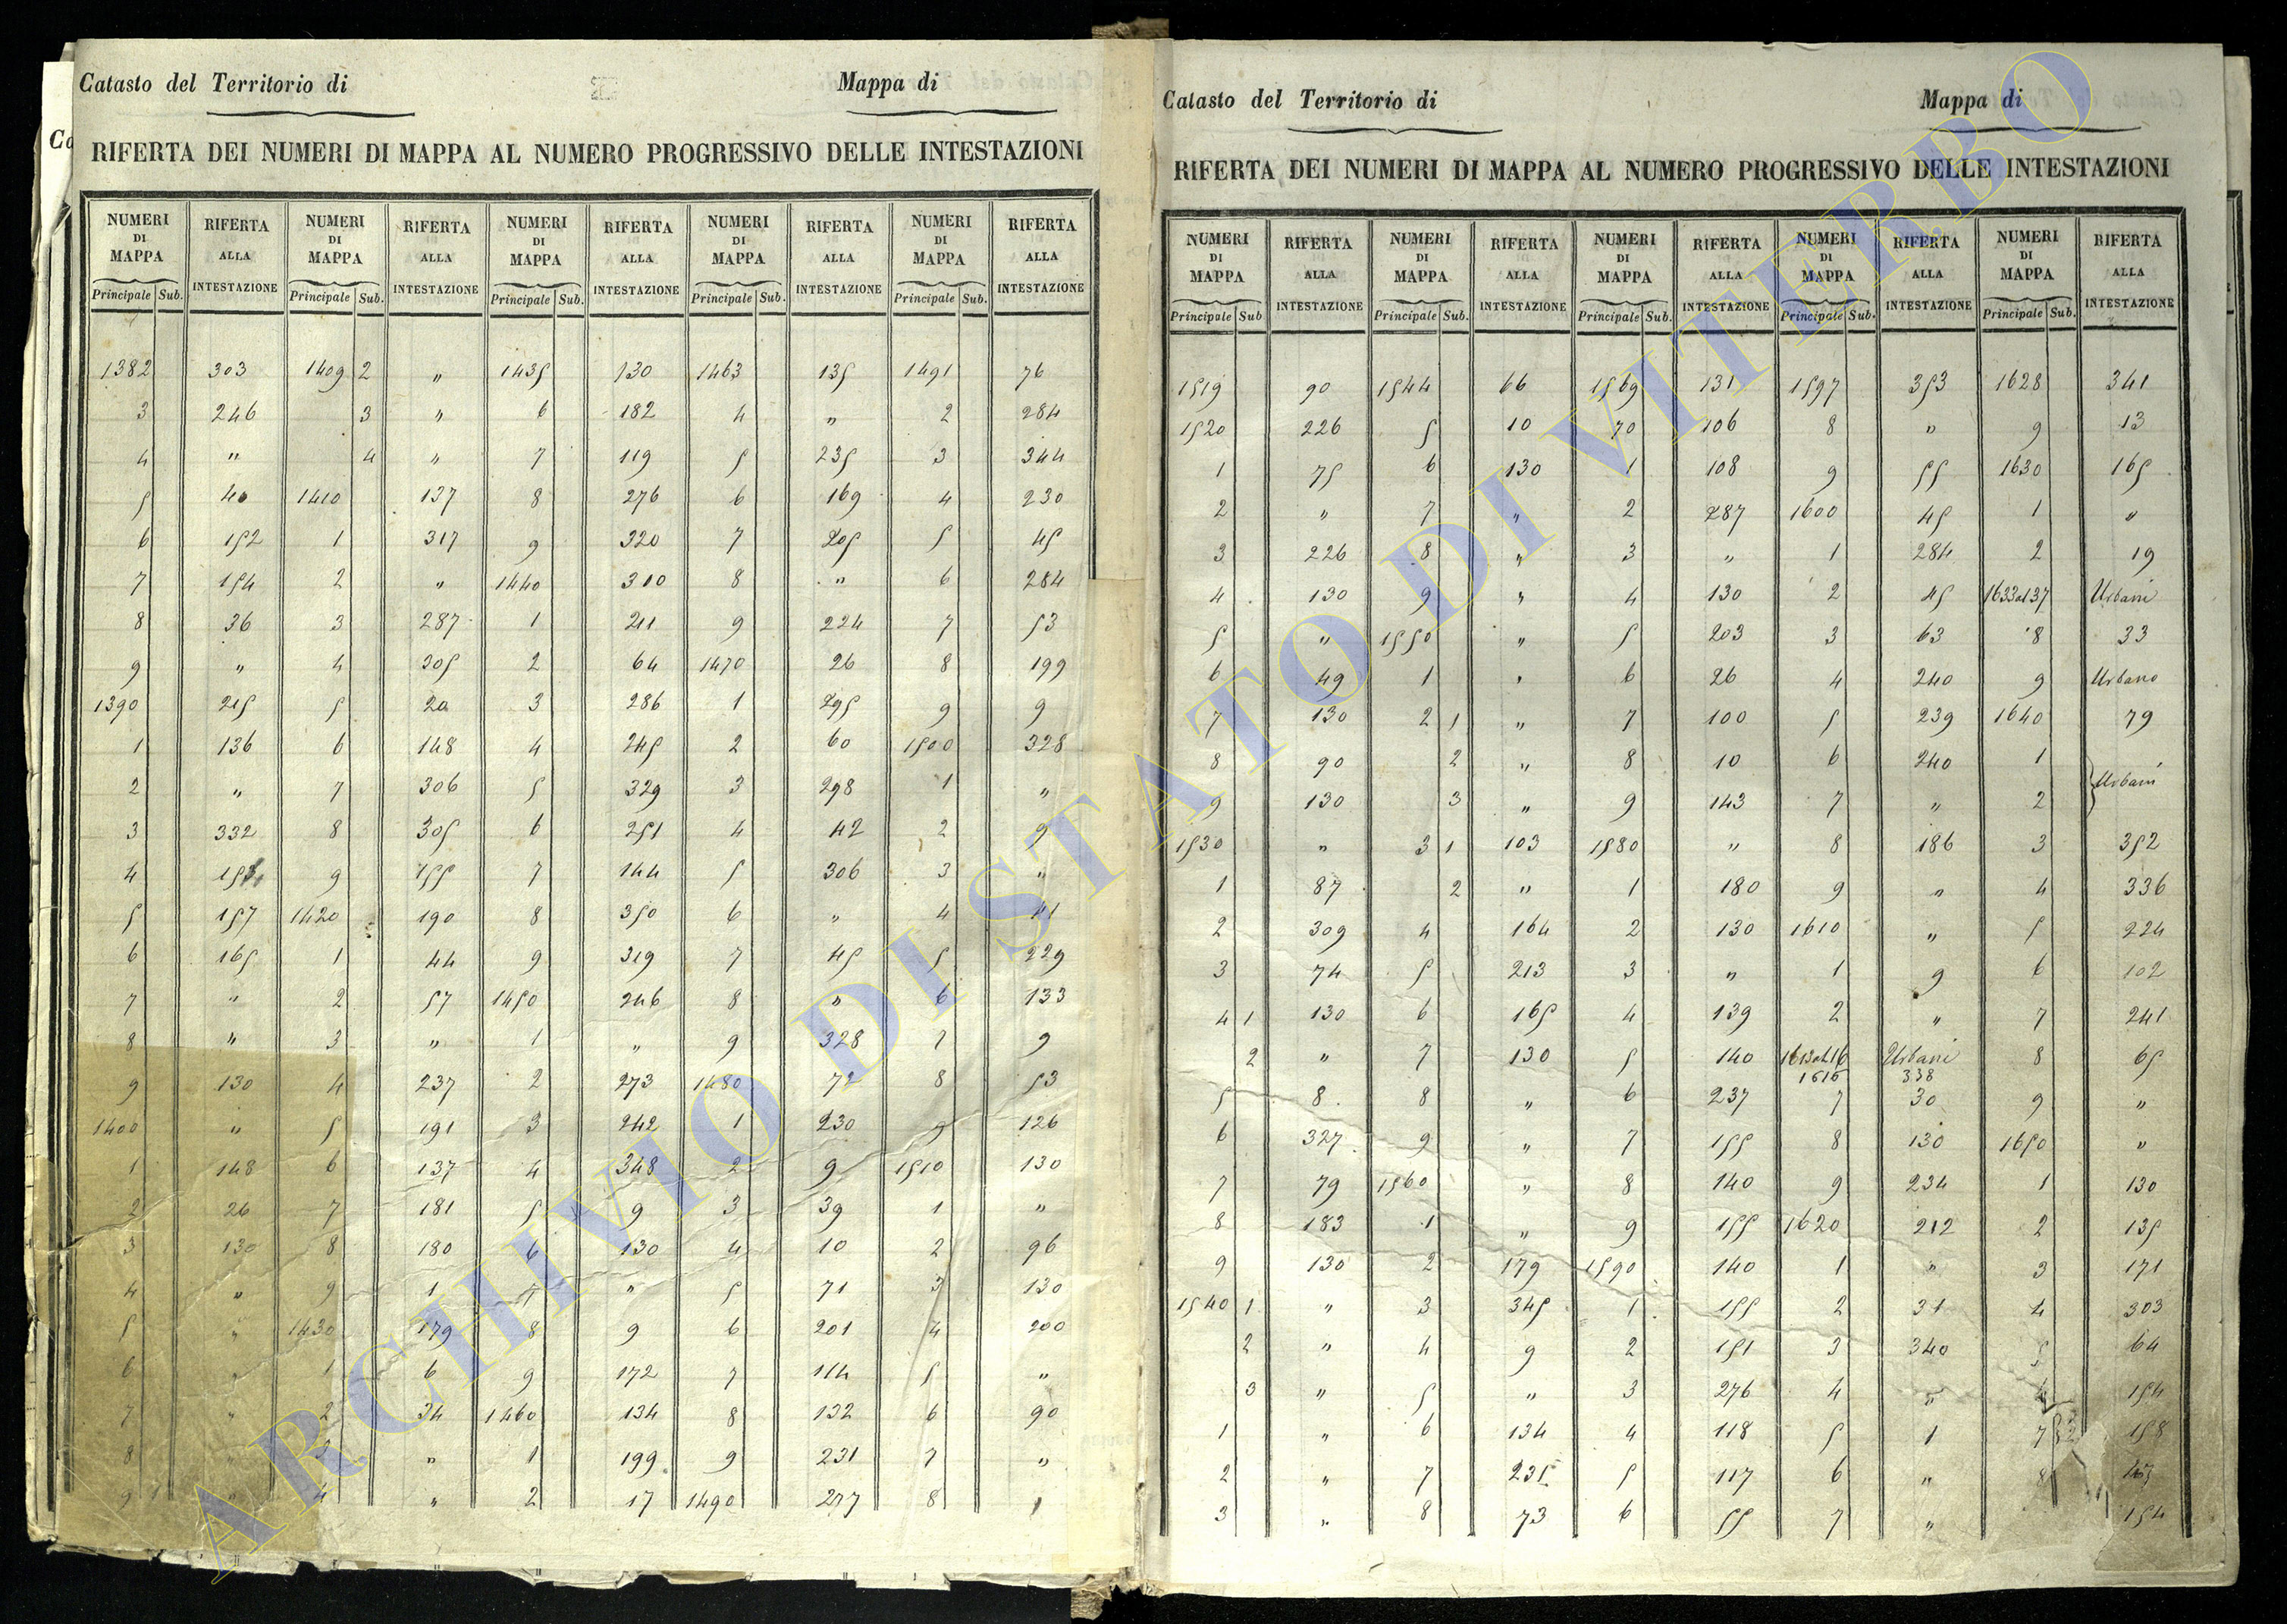 Catasto del Territorio di Mappa di
RIFERTA DEI NUMERI DI MAPPA AL NUMERO PROGRESSIVO DELLE INTESTAZIONI
NUMERI DI MAPPA RIFERTA ALLA INTESTAZIONE NUMERI DI MAPPA RIFERTA ALLA INTESTAZIONE NUMERI DI MAPPA RIFERTA ALLA INTESTAZIONE NUMERI DI MAPPA RIFERTA ALLA INTESTAZIONE NUMERI DI MAPPA RIFERTA ALLA INTESTAZIONE
Principale Sub. Principale Sub. Principale Sub. Principale Sub. Principale Sub.
1382 303 1409 2 " 1435 130 1463 135 1491 76
3 246 3 " 6 182 4 " 2 284
4 " 4 " 7 119 5 235 3 344
5 40 1410 137 8 276 6 169 4 230
6 152 1 317 9 320 7 205 5 45
7 154 2 " 1440 310 8 " 6 284
8 36 3 287 1 211 9 224 7 53
9 " 4 305 2 64 1470 26 8 199
1390 215 5 20 3 286 1 295 9 9
1 136 6 148 4 245 2 60 1500 328
2 " 7 306 5 329 3 298 1 "
3 332 8 305 6 251 4 42 2 9
4 9 155 7 144 5 306 3 "
5 157 1420 190 8 350 6 " 4 41
6 165 1 44 9 319 7 45 5 229
7 " 2 57 1450 246 8 " 6 133
8 " 3 " 1 " 9 328 7 9
9 130 4 237 2 273 1480 72 8 53
1400 " 5 191 3 242 1 230 9 126
1 148 6 137 4 348 2 9 1510 130
2 26 7 181 5 9 3 39 1 "
3 130 8 180 6 130 4 10 2 96
4 " 9 1 7 " 5 71 3 130
5 " 1430 179 8 9 6 201 4 200
6 " 1 6 9 172 7 114 5 "
7 " 2 34 1460 134 8 132 6 90
8 " 3 " 1 199 9 231 7 "
9 1 " 4 " 2 17 1490 277 8
Catasto del Territorio di Mappa di
RIFERTA DEI NUMERI DI MAPPA AL NUMERO PROGRESSIVO DELLE INTESTAZIONI
NUMERI DI MAPPA RIFERTA ALLA INTESTAZIONE NUMERI DI MAPPA RIFERTA ALLA INTESTAZIONE NUMERI DI MAPPA RIFERTA ALLA INTESTAZIONE NUMERI DI MAPPA RIFERTA ALLA INTESTAZIONE NUMERI DI MAPPA RIFERTA ALLA INTESTAZIONE
Principale Sub Principale Sub. Principale Sub. Principale Sub. Principale Sub.
1519 90 1544 66 1569 131 1597 353 1628 341
1520 226 5 10 70 106 8 " 9 13
1 75 6 130 1 108 9 55 1630 165
2 " 7 " 2 287 1600 45 1 "
3 226 8 " 3 " 1 284 2 19
4 130 9 " 4 130 2 45 1633al37 Urbani
5 " 1550 " 5 203 3 63 8 33
6 49 1 " 6 26 4 240 9 Urbano
7 130 2 1 " 7 100 5 239 1640 79
8 90 2 " 8 10 6 240 1 Urbani
9 130 3 " 9 143 7 " 2
1530 " 3 1 103 1580 " 8 186 3 352
1 87 2 " 1 180 9 " 4 336
2 309 4 164 2 130 1610 " 5 224
3 74 5 213 3 " 1 9 6 102
4 1 130 6 165 4 139 2 " 7 241
2 " 7 130 5 140 1613al16 Urbani 8 65
1616 338
5 8 8 " 6 237 7 30 9 "
6 327 9 " 7 155 8 130 1650 "
7 79 1560 " 8 140 9 234 1 130
8 183 1 " 9 155 1620 212 2 135
9 130 2 179 1590 140 1 " 3 171
1540 1 " 3 345 1 155 2 31 4 303
2 " 4 9 2 151 3 340 5 64
3 " 5 " 3 276 4 " 154
1 " 6 134 4 118 5 1 7 158
2 " 7 235 5 117 6 " 8
3 " 8 73 6 55 7 " 154
ARCHIVIO DI STATO DI VITERBO